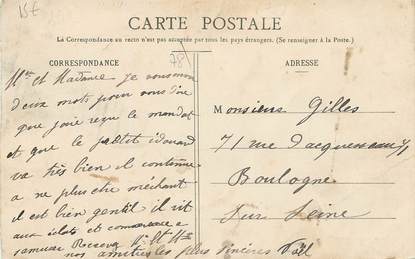 15€
78
CARTE POSTALE
La Correspondance au recto n'est pas acceptée par tous les pays étrangers. (Se renseigner à la Poste.)
CORRESPONDANCE
Mr et Madame je vous
deux mots pour vous dire
que jaie reçu le mandat
et que le petit
va très bien il continue
a ne plus etre méchant
il est bien gentil il rit
aux et commence a
samuser Recevez Mr Et Mme
nos amitiés les plus sincères
ADRESSE
Monsieur Gilles
71 rue
Boulogne
Sur Seine